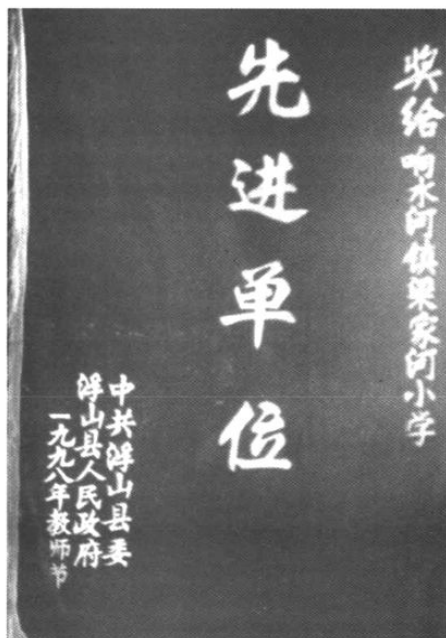 奖给响水河镇梁家河小学
先进单位
中共浮山县委
浮山县人民政府
一九九八年教师节